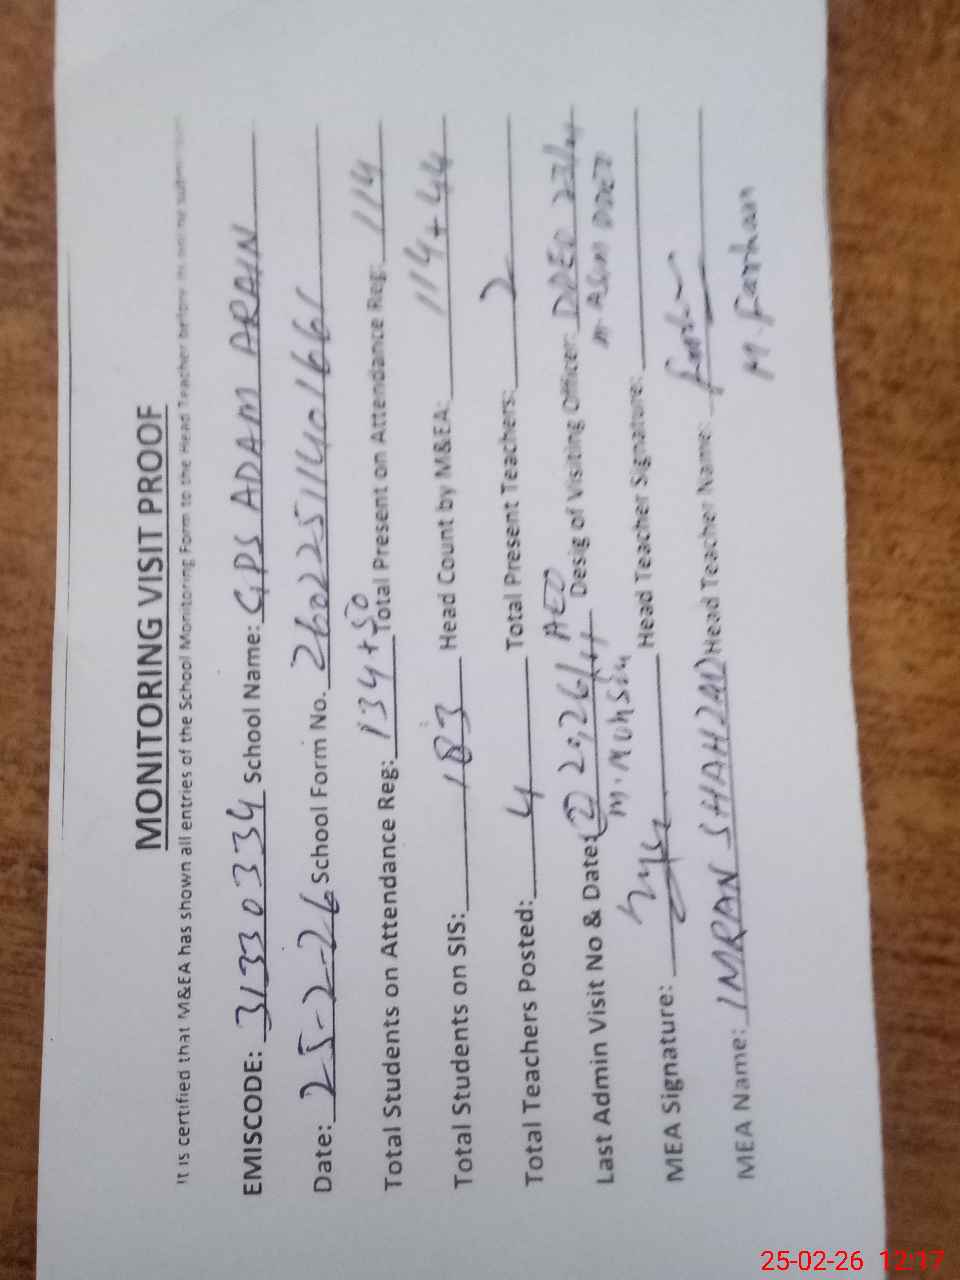 MONITORING VISIT PROOF
It is certified that M&EA has shown all entries of the School Monitoring Form to the Head Teacher before its online
EMISCODE: 31330334 School Name: GPS ADAM ARAIN
Date: 25-2-26 School Form No. 260225114016661
Total Students on Attendance Reg: 134+50 Total Present on Attendance Reg: 114
Total Students on SIS: 183 Head Count by M&EA: 114+44
Total Teachers Posted: 4 Total Present Teachers: 2
Last Admin Visit No & Date: AEO Desig of Visiting Officer: DDEO
M. Mohsin
MEA Signature: Head Teacher Signature:
MEA Name: IMRAN SHAHZAD Head Teacher Name:
M. Farhaan
25-02-26 12:17